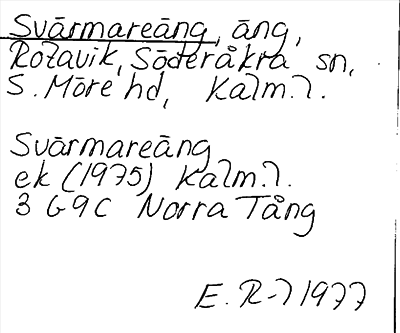 Svärmareäng, äng,
Rotavik, Söderåkra sn,
S. Möre hd, Kalm. l.
Svärmareäng
ek (1975) Kalm. l.
3 G 9 C Norra Tång
E. R-l 1977